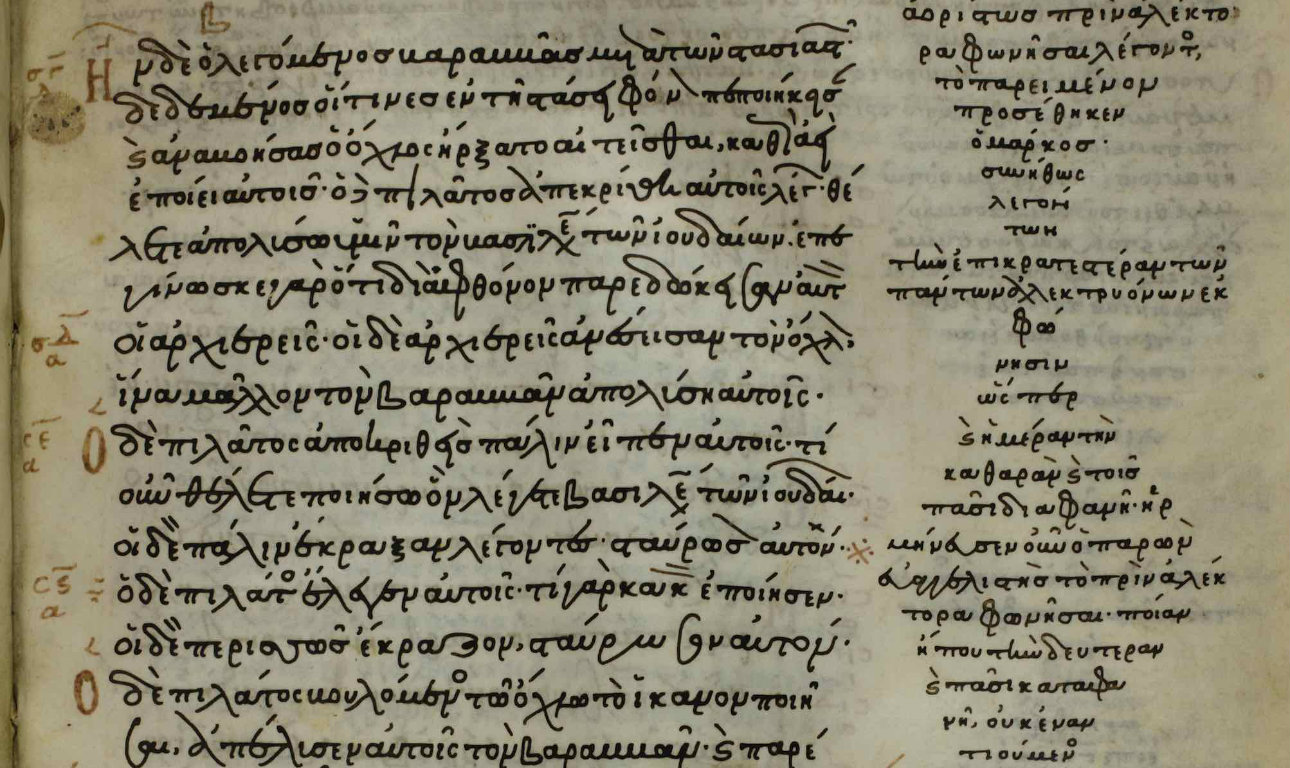 Ἦν δὲ ὁ λεγόμενος βαραββᾶς μετὰ τῶν στασιαστ
δεδεμένος οἵτινες ἐν τῇ στάσει φόν πεποιήκεισ
καὶ ἀναβοήσας ὁ ὄχλος ἤρξατο αἰτεῖσθαι, καθὼς ἀεὶ
ἐποίει αὐτοῖς· ὁ δὲ πιλᾶτος ἀπεκρίθη αὐτοῖς λέγ· θέ
λετε ἀπολύσω ὑμῖν τὸν βασιλέ τῶν ἰουδαίων. ἐπε
γίνωσκε γὰρ ὅτι διὰ φθόνον παρεδώκεισαν αὐτ
οἱ ἀρχιερεῖς· οἱ δὲ ἀρχιερεῖς ἀνέσεισαν τὸν ὄχλ,
ἵνα μᾶλλον τὸν βαραββᾶν ἀπολύσῃ αὐτοῖς·
Ὁ δὲ πιλᾶτος ἀποκριθεὶς πάλιν εἶπεν αὐτοῖς· τί
οὖν θέλετε ποιήσω ὃν λέγετε βασιλέ τῶν ἰουδαί·
οἱ δὲ πάλιν ἔκραξαν λέγοντες· σταύρωσ αὐτόν·
ὁ δὲ πιλάτ ἔλεγεν αὐτοῖς· τί γὰρ κακ ἐποίησεν·
οἱ δὲ περισσῶς ἔκραζον, σταύρωσαν αὐτόν·
Ὁ δὲ πιλάτος βουλόμεν τῷ ὄχλω τὸ ἱκανον ποιῆ
σαι, ἀπέλυσεν αὐτοῖς τὸν βαραββᾶν· καὶ παρέ
ἀορίστως πρὶν ἀλέκτο
ρα φωνῆσαι λέγοντ,
τὸ παρειμένον
προσέθηκεν
ὁ μάρκος·
συνήθως
λεγόν
των
τὴν ἐπικρατεστέραν τῶν
πάντων ἀλεκτρυόνων ἐκ
φώ
νησιν
ὥσπερ
καὶ ἡμέραν τὴν
καθαρὰν καὶ τοῖς
πᾶσι διαφανῆ· ἡρ
μήνευσεν οὖν ὁ παρὼν
εὐαγγελιστὴς τὸ πρὶν ἀλέκ
τορα φωνῆσαι· ποίαν
ἤπου τὴν δευτεραν
καὶ πᾶσι καταφα
νῆ, οὐκ ἐναν
τιούμεν